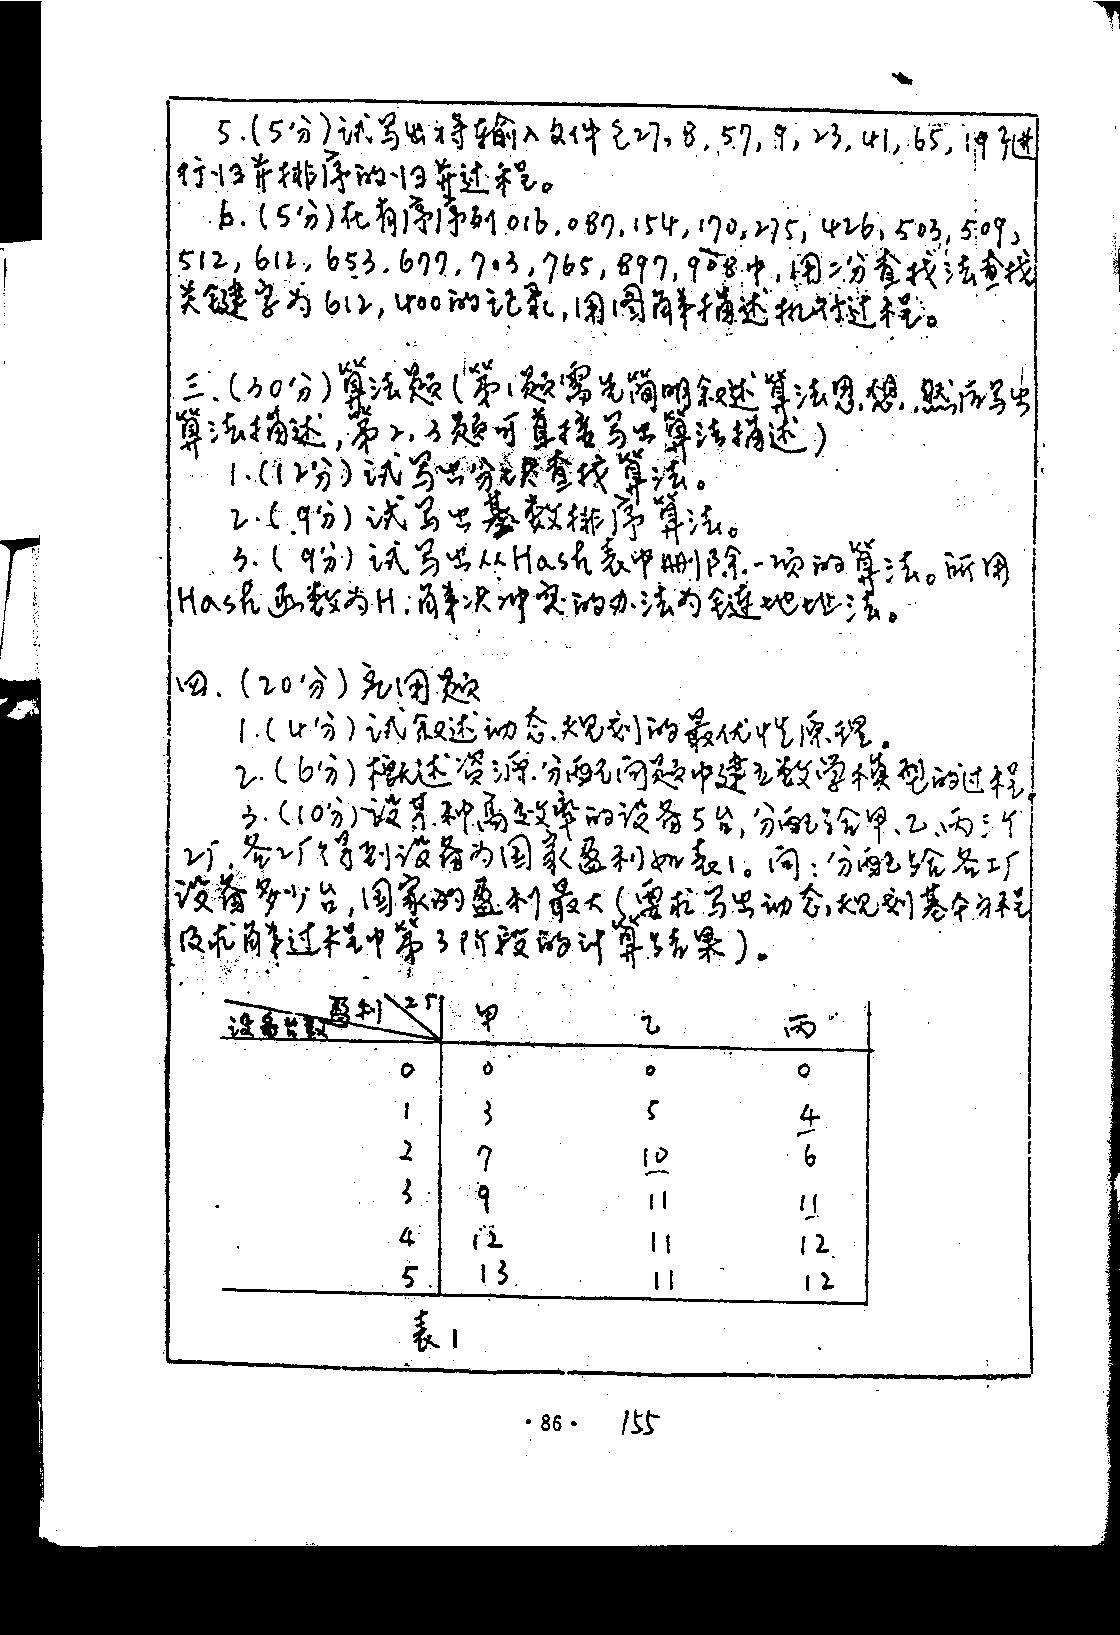 5.(5分)试写出将输入文件{27,8,57,9,23,41,65,19}进
行归并排序的归并过程。
6.(5分)在有序序列016,087,154,170,275,426,503,509,
512,612,653,677,703,765,897,908中,用二分查找法查找
关键字为612,400的记录,用图解描述执行过程。
三.(30分)算法题(第1题需先简明叙述算法思想,然后写出
算法描述,第2.3题可直接写出算法描述)
1.(12分)试写出分块查找算法。
2.(9分)试写出基数排序算法。
3.(9分)试写出从Hash表中删除一项的算法。所用
Hash函数为H,解决冲突的办法为链地址法。
四.(20分)应用题
1.(4分)试叙述动态规划的最优性原理。
2.(6分)概述资源分配问题中建立数学模型的过程。
3.(10分)设某种高效率的设备5台,分配给甲、乙、丙三个
工厂,各工厂得到设备为国家盈利如表1。问:分配给各工厂
设备多少台,国家的盈利最大(要求写出动态规划基本方程
及求解过程中第3阶段的计算结果)。
设备台数 盈利 工厂 甲 乙 丙
0 0 0 0
1 3 5 4
2 7 10 6
3 9 11 11
4 12 11 12
5 13 11 12
表1
·86· 155